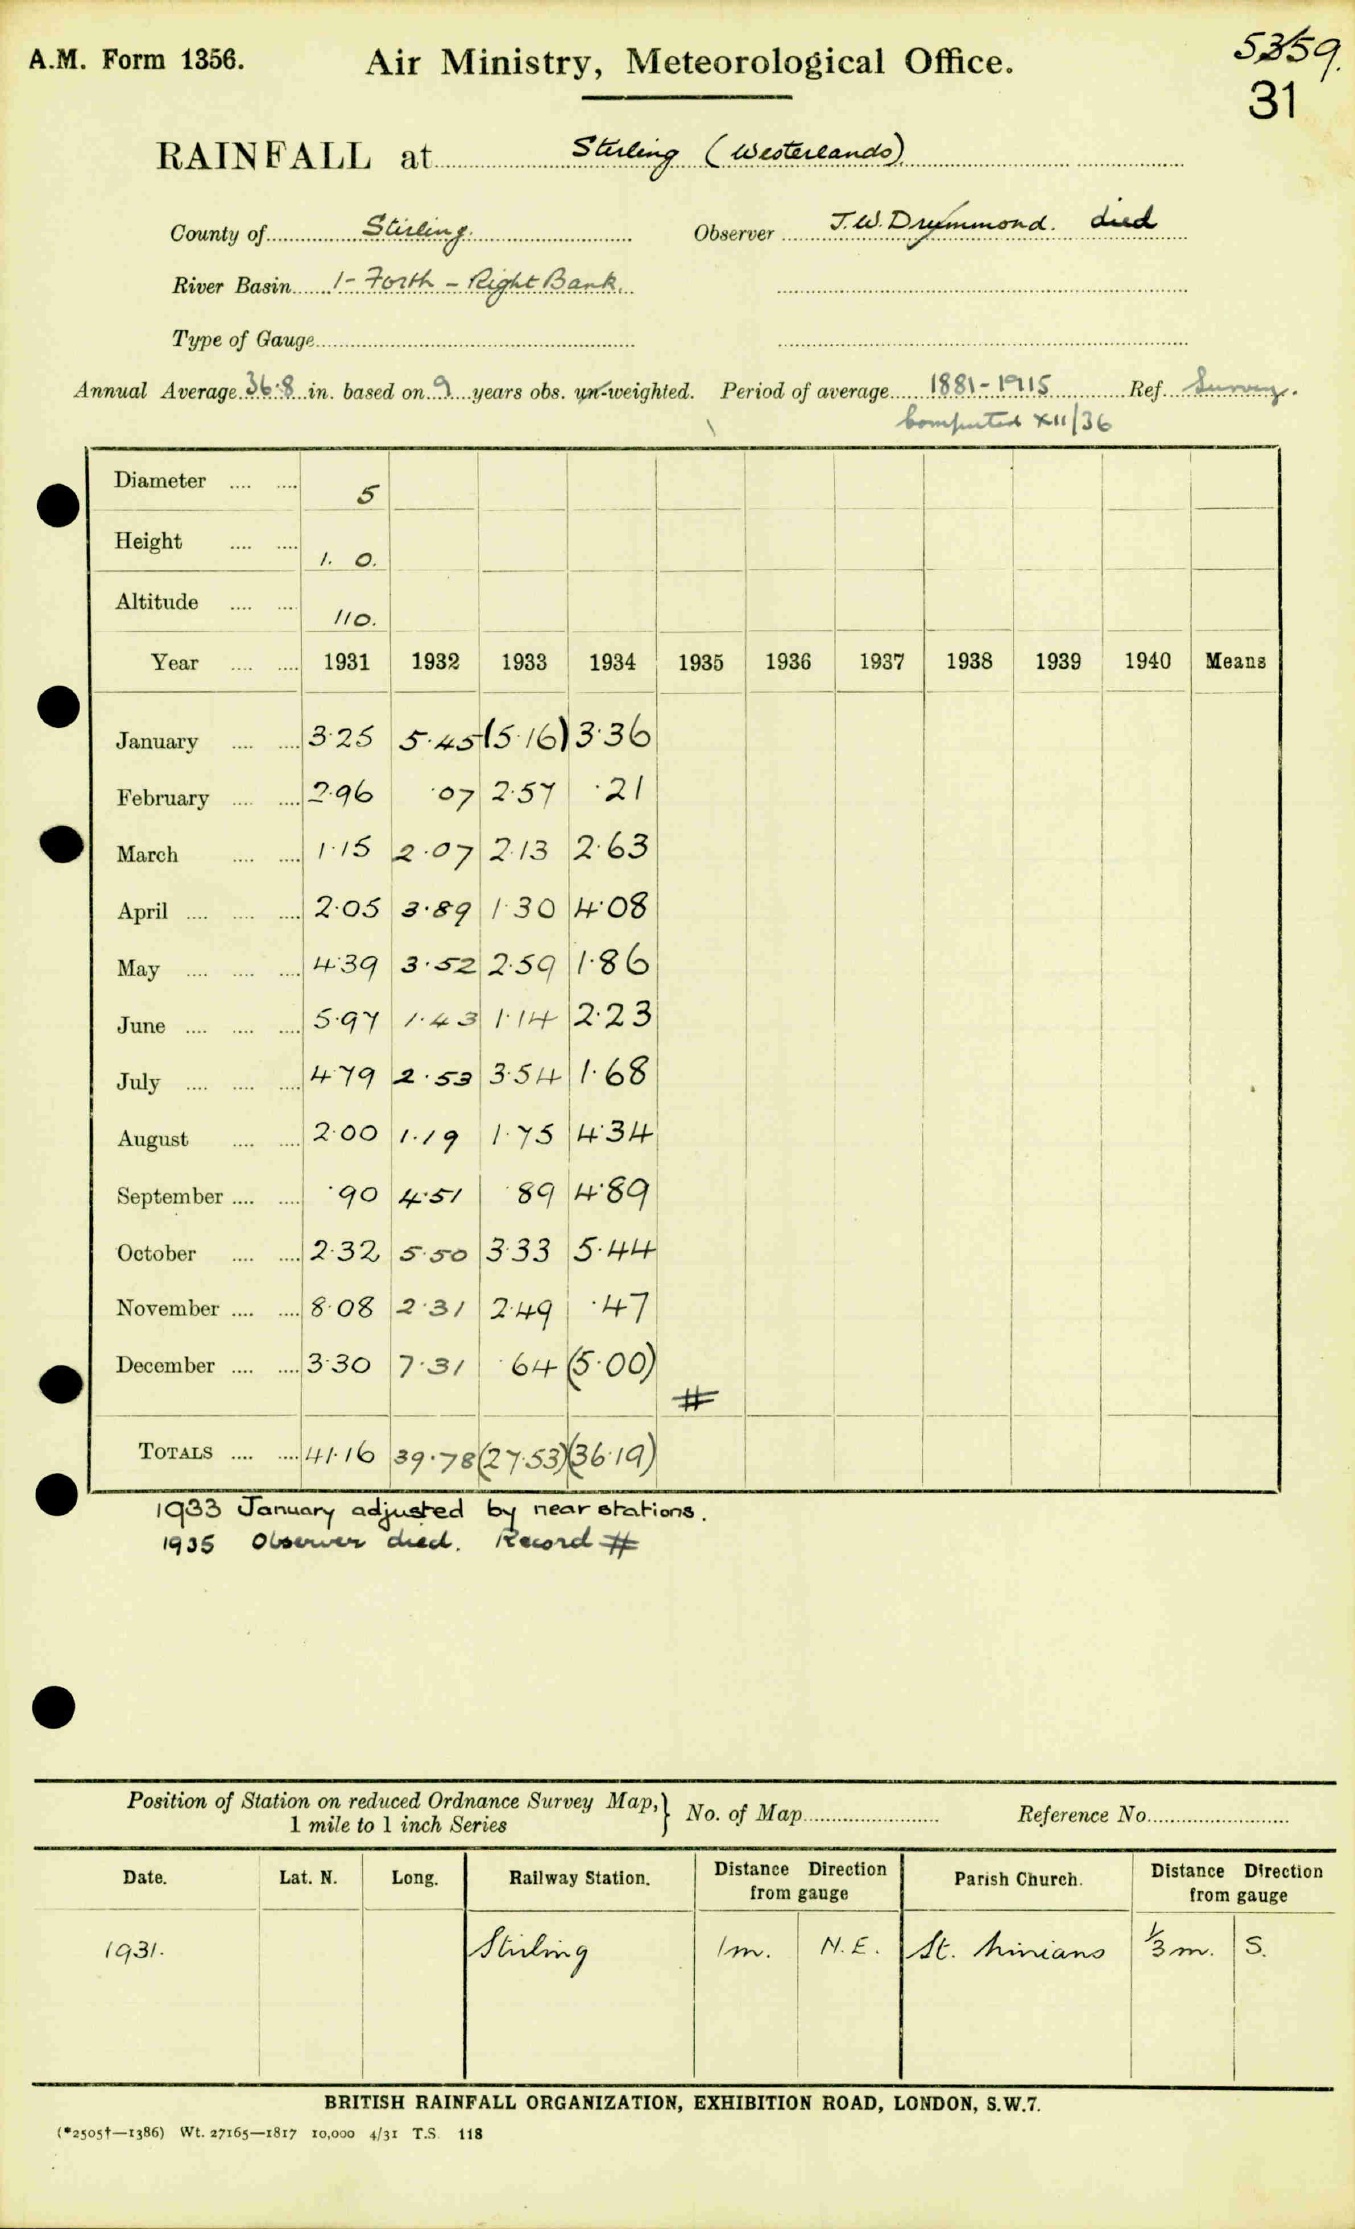 A.M. Form 1356. Air Ministry, Meteorological Office. 5359.
31
RAINFALL at Stirling (Westerlands)
County of Stirling. Observer J.W. Drummond. died
River Basin 1- Forth - Right Bank.
Type of Gauge
Annual Average 36.8 in. based on 9 years obs. un-weighted. Period of average 1881-1915 Ref. Survey.
Computed XII/36
Diameter .... .... 5
Height .... .... 1. 0.
Altitude .... .... 110.
Year .... .... 1931 1932 1933 1934 1935 1936 1937 1938 1939 1940 Means
January .... .... 3.25 5.45 (5.16) 3.36
February .... .... 2.96 .07 2.57 .21
March .... .... 1.15 2.07 2.13 2.63
April .... .... .... 2.05 3.89 1.30 4.08
May .... .... .... 4.39 3.52 2.59 1.86
June .... .... .... 5.97 1.43 1.14 2.23
July .... .... .... 4.79 2.53 3.54 1.68
August .... .... 2.00 1.19 1.75 4.34
September .... .... .90 4.51 .89 4.89
October .... .... 2.32 5.50 3.33 5.44
November .... .... 8.08 2.31 2.49 .47
December .... .... 3.30 7.31 .64 (5.00)
#
TOTALS .... .... 41.16 39.78 (27.53) (36.19)
1933 January adjusted by near stations.
1935 Observer died. Record #
Position of Station on reduced Ordnance Survey Map, } No. of Map Reference No.
1 mile to 1 inch Series
Date. Lat. N. Long. Railway Station. Distance Direction from gauge Parish Church. Distance Direction from gauge
1931. Stirling 1m. N.E. St. Ninians 1/3 m. S.
BRITISH RAINFALL ORGANIZATION, EXHIBITION ROAD, LONDON, S.W.7.
(*2505†—1386) Wt. 27165—1817 10,000 4/31 T.S. 118